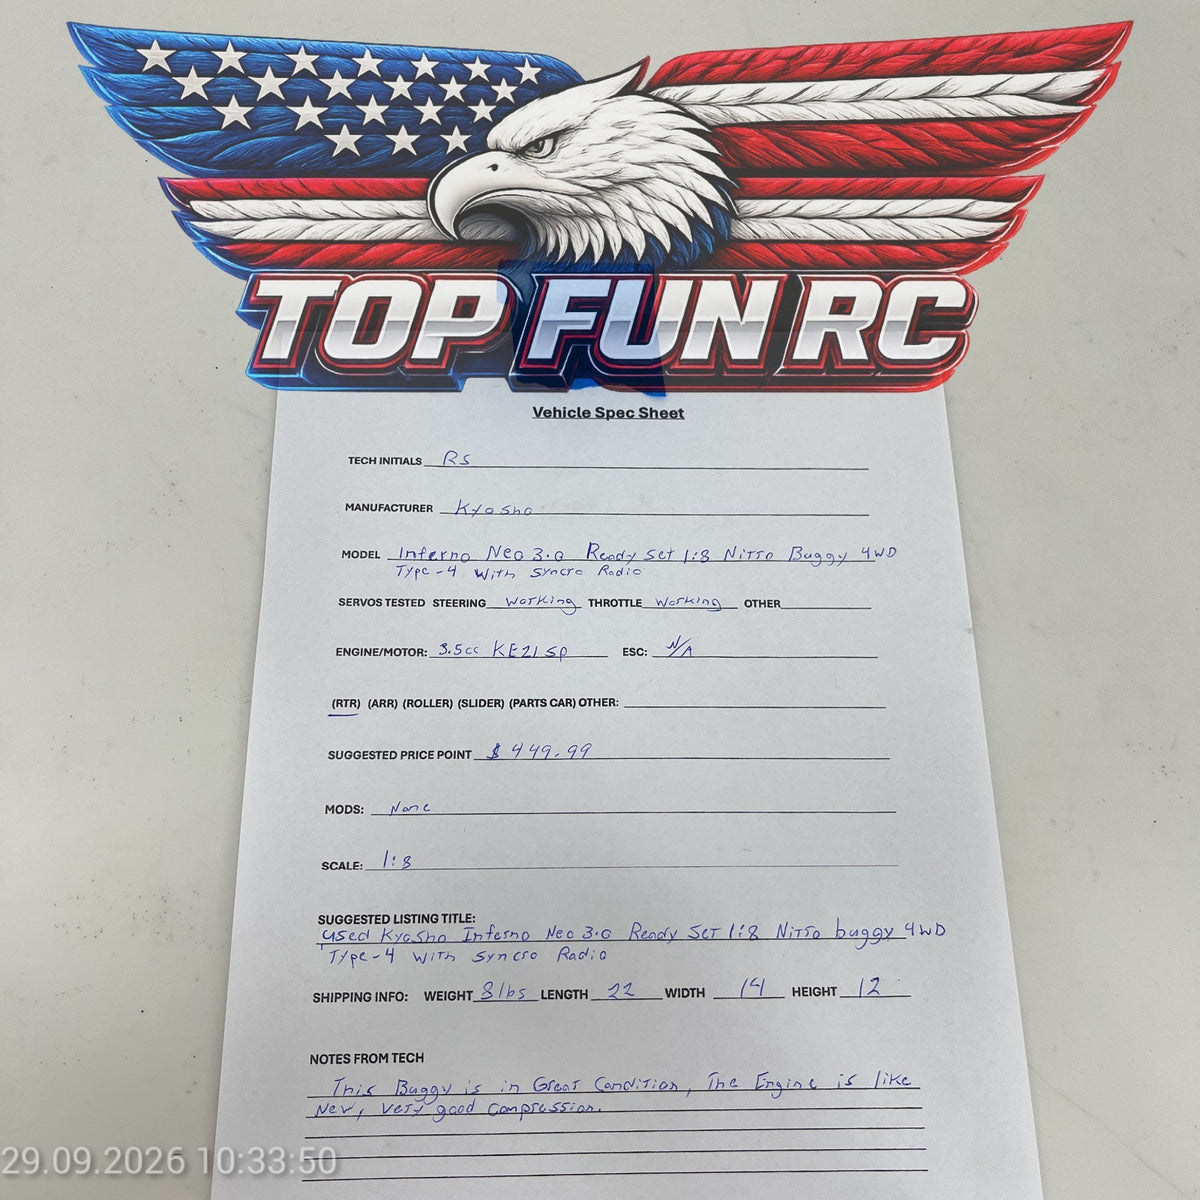 TOP FUN RC
Vehicle Spec Sheet
TECH INITIALS RS
MANUFACTURER Kyosho
MODEL Inferno Neo 3.0 Ready Set 1:8 Nitro Buggy 4WD
Type-4 With Syncro Radio
SERVOS TESTED STEERING Working THROTTLE Working OTHER
ENGINE/MOTOR: 3.5cc KE21SP ESC: N/A
(RTR) (ARR) (ROLLER) (SLIDER) (PARTS CAR) OTHER:
SUGGESTED PRICE POINT $449.99
MODS: None
SCALE: 1:8
SUGGESTED LISTING TITLE:
Used Kyosho Inferno Neo 3.0 Ready Set 1:8 Nitro buggy 4WD
Type-4 With Syncro Radio
SHIPPING INFO: WEIGHT 8lbs LENGTH 22 WIDTH 14 HEIGHT 12
NOTES FROM TECH
This Buggy is in Great Condition, The Engine is like
New, very good compression.
29.09.2026 10:33:50